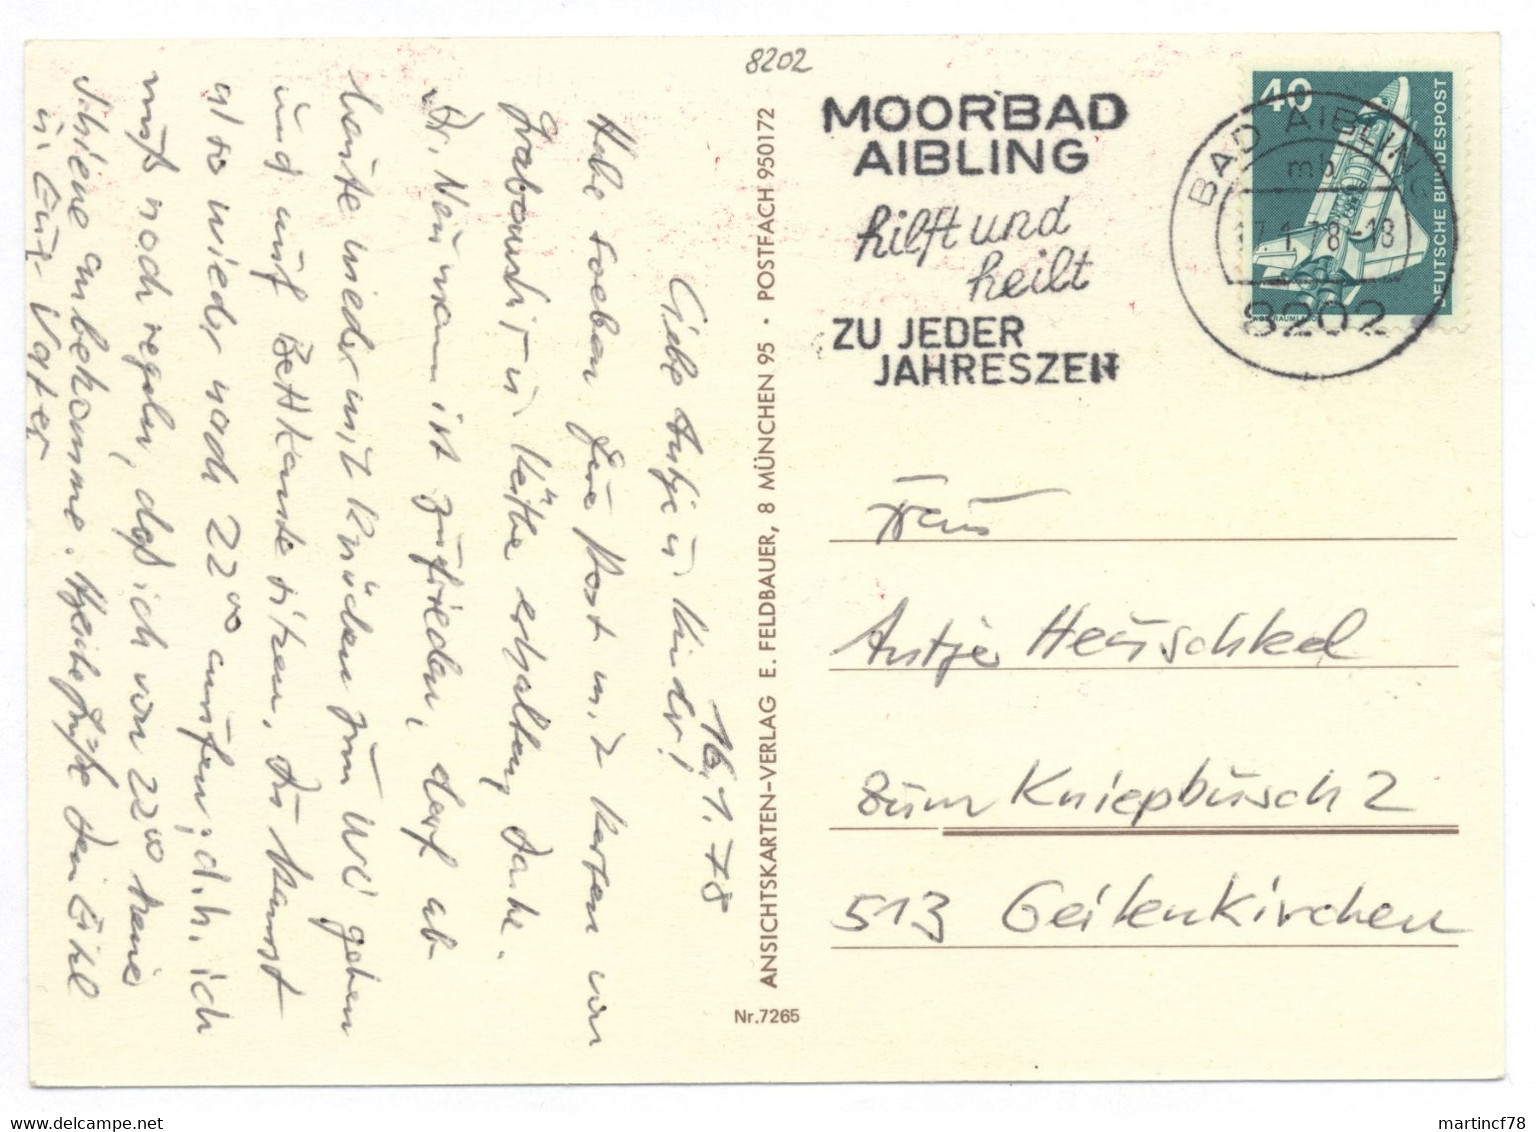 8202
MOORBAD
AIBLING
hilft und
heilt
ZU JEDER
JAHRESZEIT
40
DEUTSCHE BUNDESPOST
BAD AIBLING
mb
17.1. 8-18
8202
16.1.78
Liebe Antje u. Kinder!
Habe soeben Eure Post mit Karten von
Grabowski u. Käthe erhalten, Danke.
Dr. Neumann ist zufrieden, darf ab
heute wieder mit Krücken zum WC gehen
und auf Bettkante sitzen, Du kannst
also wieder nach 22⁰⁰ anrufen, d.h. ich
muß noch regeln, daß ich von 22⁰⁰ keine
Schiene anbekomme. Herzliche Grüße Dein
u. Euer Vater
ANSICHTSKARTEN-VERLAG E. FELDBAUER, 8 MÜNCHEN 95 · POSTFACH 950172
Nr.7265
Frau
Antje Heuschkel
Zum Kniepbusch 2
513 Geilenkirchen
martincf78